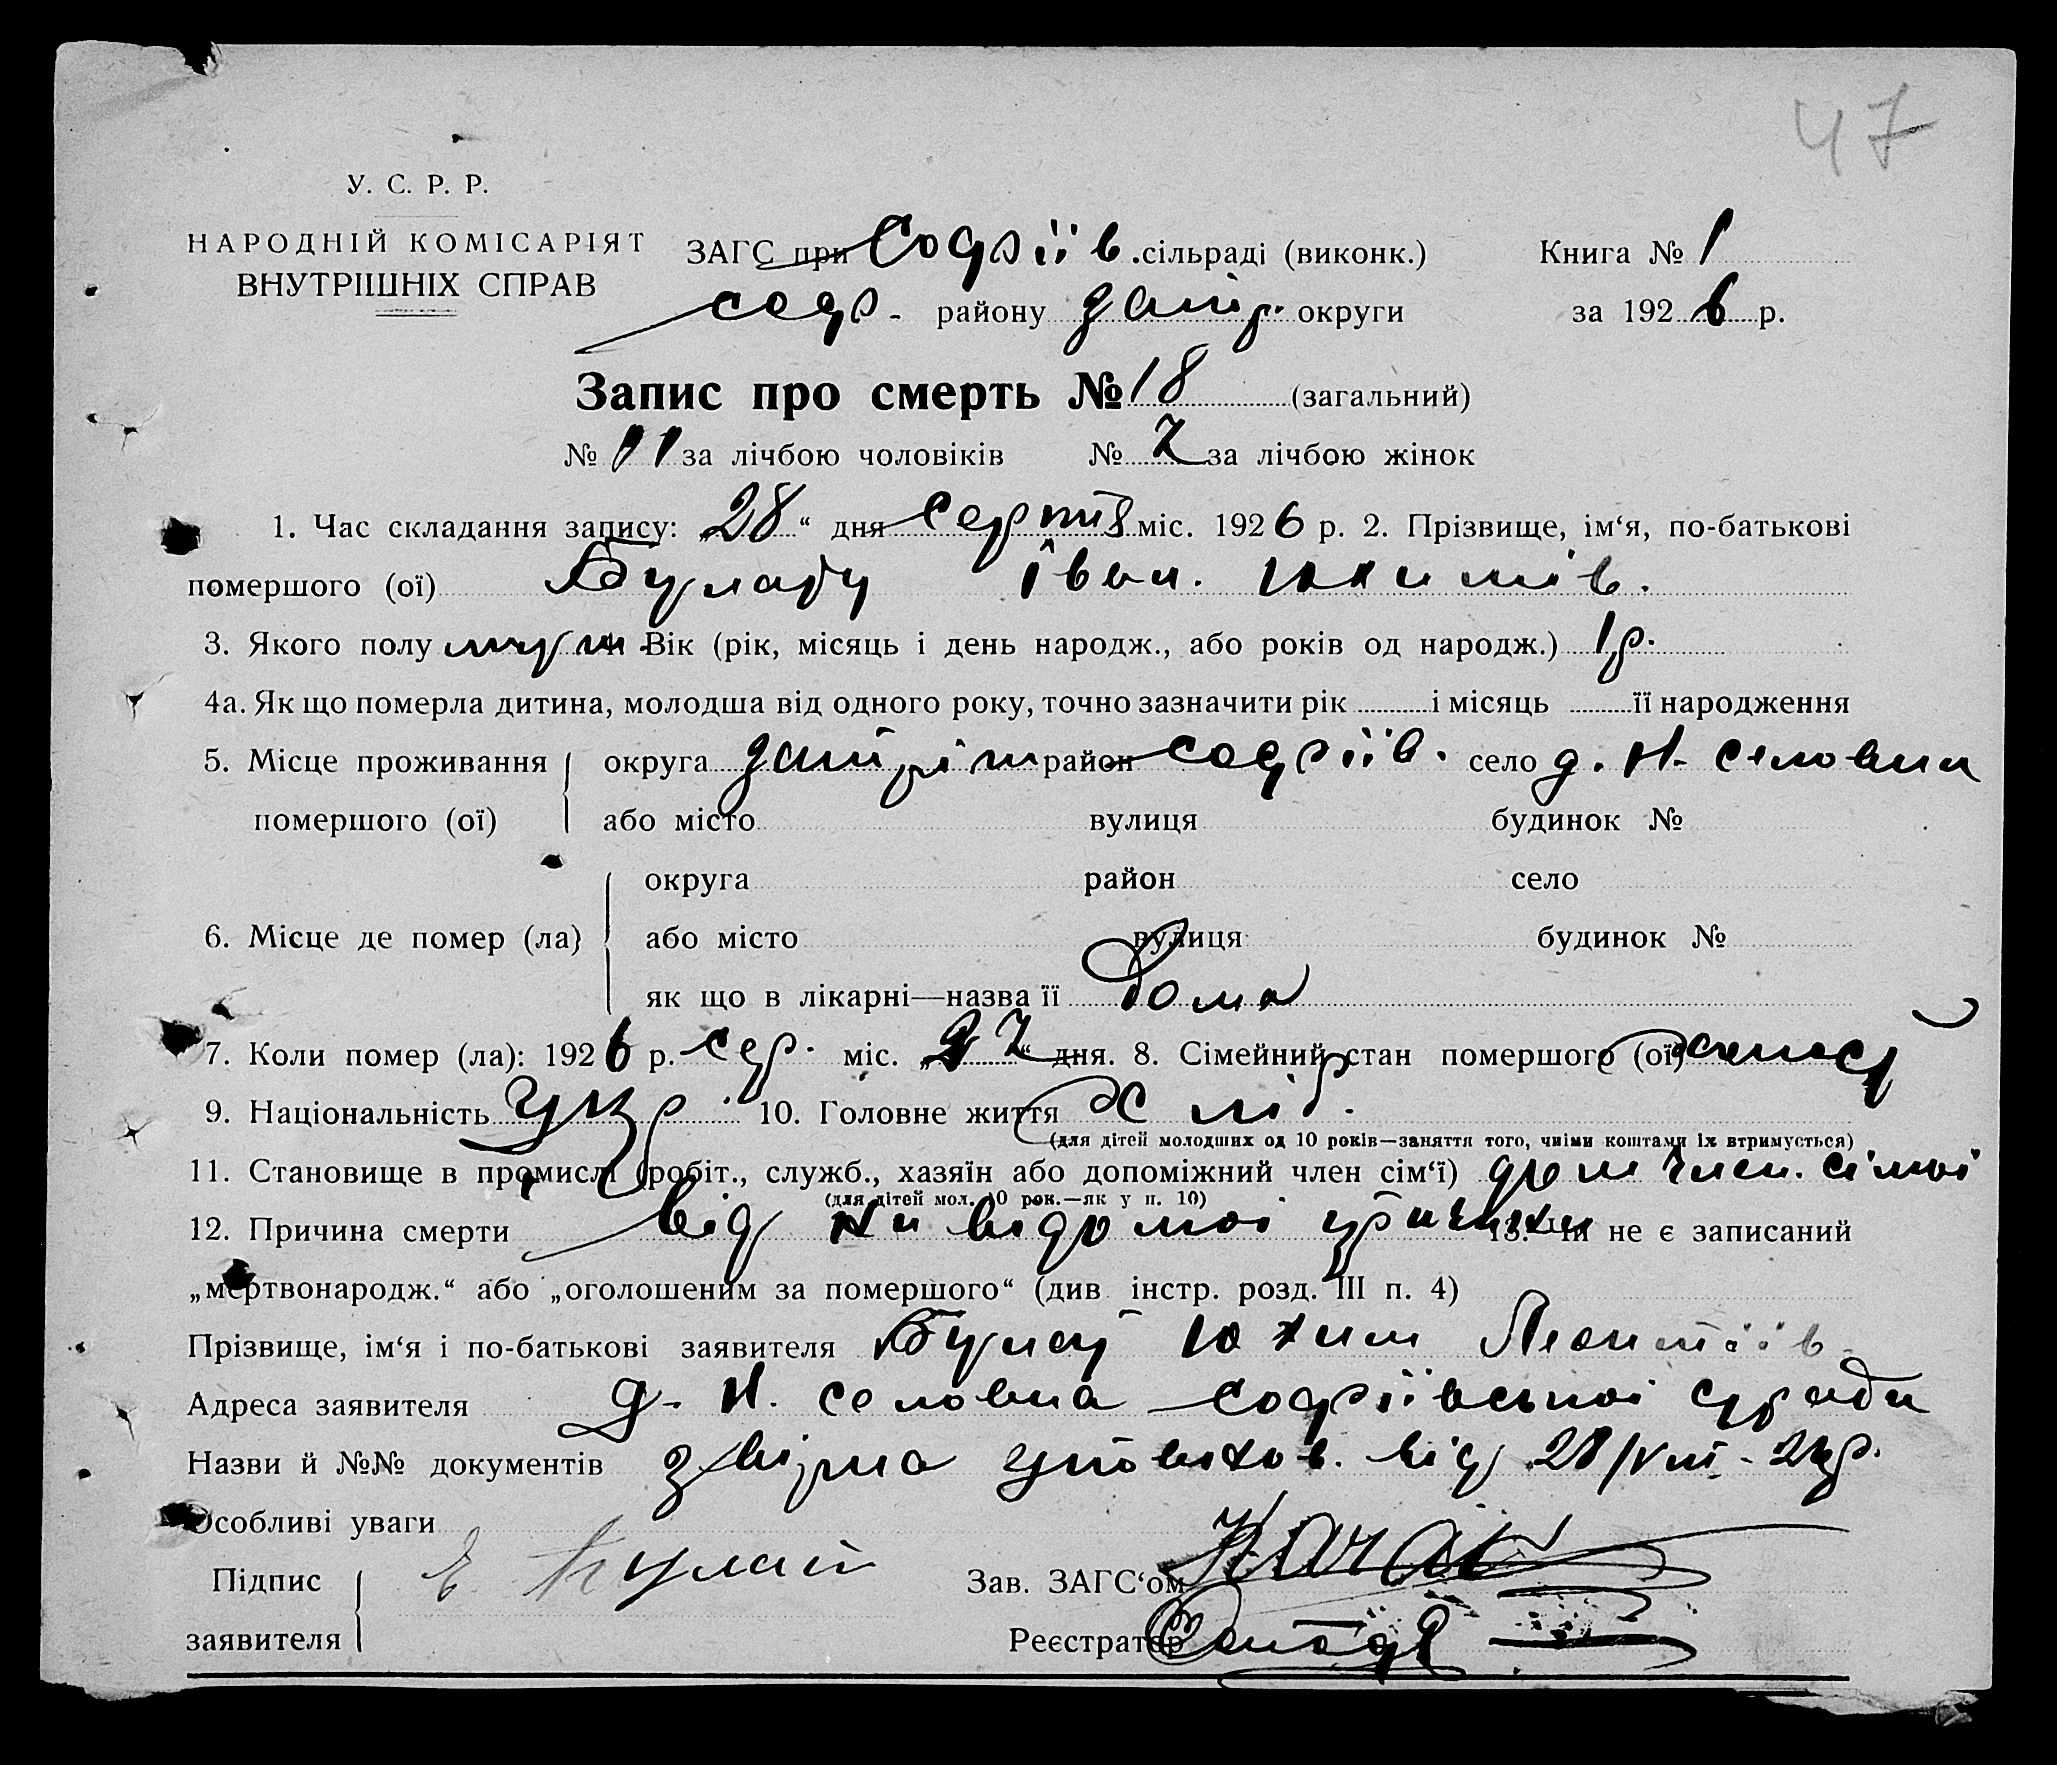 47
У. С. Р. Р.
НАРОДНІЙ КОМІСАРІЯТ
ВНУТРІШНІХ СПРАВ
ЗАГС при Софіїв. сільраді (виконк.) Книга № 1
соф. району дніпр. округи за 1926 р.
Запис про смерть № 18 (загальний)
№ 11 за лічбою чоловіків № 7 за лічбою жінок
1. Час складання запису: „28“ дня серпня міс. 1926 р. 2. Прізвище, ім‘я, по-батькові
помершого (ої) Івван. Юхимів.
3. Якого полу муж 4 Вік (рік, місяць і день народж., або років од народж.) 1 р.
4а. Як що померла дитина, молодша від одного року, точно зазначити рік і місяць її народження
5. Місце проживання округа район Софіїв. село д. Н.
помершого (ої) або місто вулиця будинок №
округа район село
6. Місце де помер (ла) або місто вулиця будинок №
як що в лікарні—назва її Дома
7. Коли помер (ла): 1926 р. сер. міс. „27“ дня. 8. Сімейний стан помершого (ої)
9. Національність Укр. 10. Головне життя Хліб.
(для дітей молодших од 10 років—заняття того, чиїми коштами їх втримується)
11. Становище в промислі (робіт., служб., хазяїн або допоміжний член сім‘ї) член. сімьі
(для дітей мол. 10 рок.—як у п. 10)
12. Причина смерти від ни відомоі причини 13. Чи не є записаний
„мертвонародж.“ або „оголошеним за помершого“ (див. інстр. розд. III п. 4)
Прізвище, ім‘я і по-батькові заявителя Булат Юхим Леонтіїв.
Адреса заявителя д. Н. Софіївськоі с/ради
Назви й №№ документів від 28/VIII - 26 р.
Особливі уваги
Підпис Е. Булат Зав. ЗАГС‘ом
заявителя Реєстратор